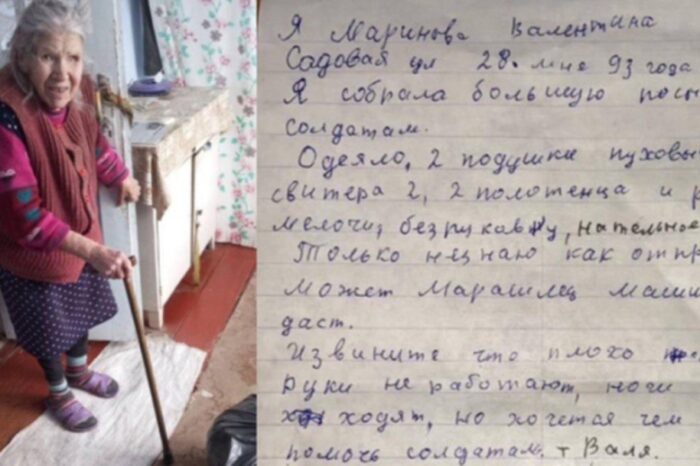 Я Маринова Валентина
Садовая ул 28. мне 93 года
Я собрала большую посы
солдатам.
Одеяло, 2 подушки пуховы
свитера 2, 2 полотенца и р
мелочи, безрукавку, нательное
Только незнаю как отпр
может Марашилец маши
даст.
Извините что плохо
руки не работают, ноги
ходят, но хочется чем
помочь солдатам. т Валя.